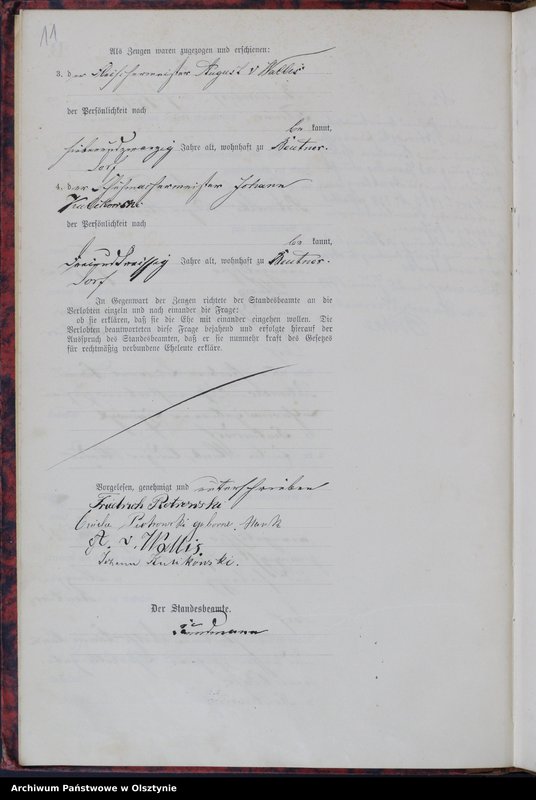 11
Als Zeugen waren zugezogen und erschienen:
3. der Fleischermeister August v Wallis
der Persönlichkeit nach
be kannt,
siebenundzwanzig Jahre alt, wohnhaft zu Beutner-
dorf
4. der Schuhmachermeister Johann
der Persönlichkeit nach
be kannt,
dreiunddreißig Jahre alt, wohnhaft zu Beutner-
dorf
In Gegenwart der Zeugen richtete der Standesbeamte an die
Verlobten einzeln und nach einander die Frage:
ob sie erklären, daß sie die Ehe mit einander eingehen wollen. Die
Verlobten beantworteten diese Frage bejahend und erfolgte hierauf der
Ausspruch des Standesbeamten, daß er sie nunmehr kraft des Gesetzes
für rechtmäßig verbundene Eheleute erkläre.
Vorgelesen, genehmigt und unterschrieben
Friedrich Piotrowski
Piotrowski geborne
A. v. Wallis.
Johann
Der Standesbeamte.
Archiwum Państwowe w Olsztynie